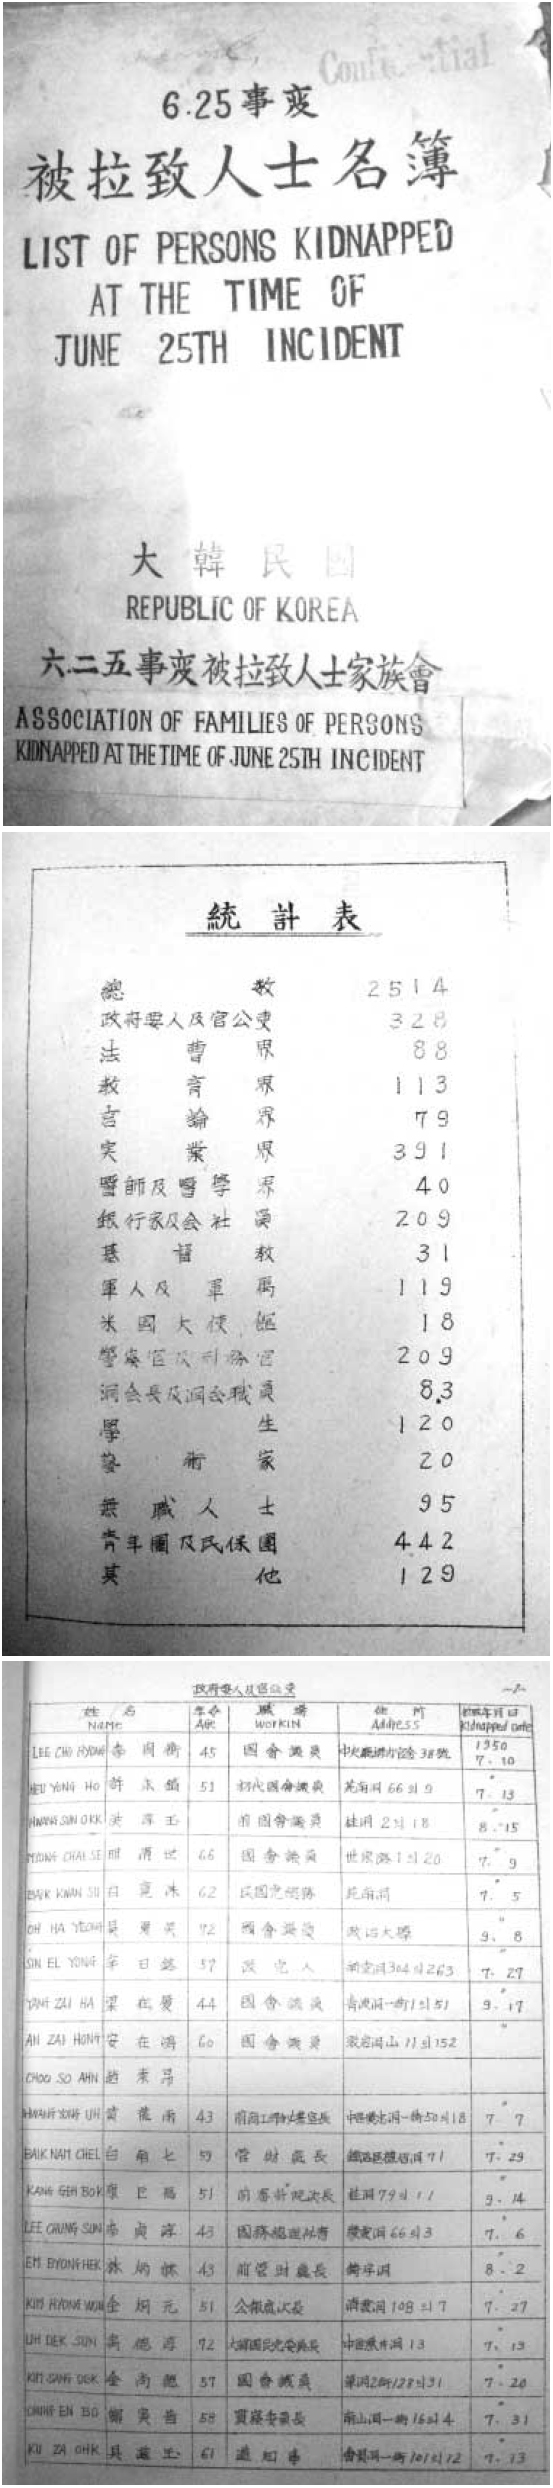 Confidential
6.25事変
被拉致人士名簿
LIST OF PERSONS KIDNAPPED
AT THE TIME OF
JUNE 25TH INCIDENT
大韓民國
REPUBLIC OF KOREA
六.二五事変被拉致人士家族會
ASSOCIATION OF FAMILIES OF PERSONS
KIDNAPPED AT THE TIME OF JUNE 25TH INCIDENT
統計表
總数 2514
政府要人及官公吏 328
法曹界 88
教育界 113
言論界 79
実業界 391
醫師及醫學界 40
銀行家及会社員 209
基督教 31
軍人及軍属 119
米國大使舘 18
警察官及刑務官 209
洞会長及洞会職員 83
學生 120
藝術家 20
無職人士 95
青年團及民保團 442
其他 129
政府要人及官公吏 -1-
姓名 年令 職場 住所 拉致年月日
Name Age workin Address Kidnapped Date
LEE CHO HYONG 李 45 國會議員 38號 1950 7. 10
HEU YONG HO 許永鎬 51 初代國會議員 苑南洞 66의9 " 7. 13
HWANG SUN OKK 淳玉 前國會議員 桂洞 2의18 " 8. 15
MYONG CHAI SE 明濟世 66 國會議員 世宗路1의20 " 7. 9
BAIK KWAN SU 白寛洙 62 苑南洞 7. 5
OH HA YEONG 吳夏英 72 國會議員 政治大學 " 9. 8
SIN EL YONG 辛日鎔 57 政党人 新堂洞304의263 7. 27
YANG ZAI HA 梁在厦 44 國會議員 青波洞一街1의51 " 9. 17
AN ZAI HONG 安在鴻 60 國會議員 敦岩洞山11의152 "
CHOO SO AHN 趙素昻
HWANG YONG UH 43 50의18 " 7. 7
BAIK NAM CHEL 白南七 59 管財處長 71 " 7. 29
KANG GEH BOK 康巨福 51 前審計院次長 桂洞79의11 " 9. 14
LEE CHUNG SUN 李貞淳 43 66의3 " 7. 6
EM BYONG HEK 林炳 43 前管財處長 " 8. 2
KIM HYONG WON 金炯元 51 公報處次長 清雲洞108의7 " 7. 27
UH DEK SUN 禹德淳 72 13 " 7. 13
KIM SANG DEK 金尚德 57 國會議員 128의31 " 7. 20
CHUNG EN BO 鄭寅普 58 監察委員長 南山洞一街16의4 " 7. 31
KU ZA OHK 具滋玉 61 道知事 101의12 " 7. 13